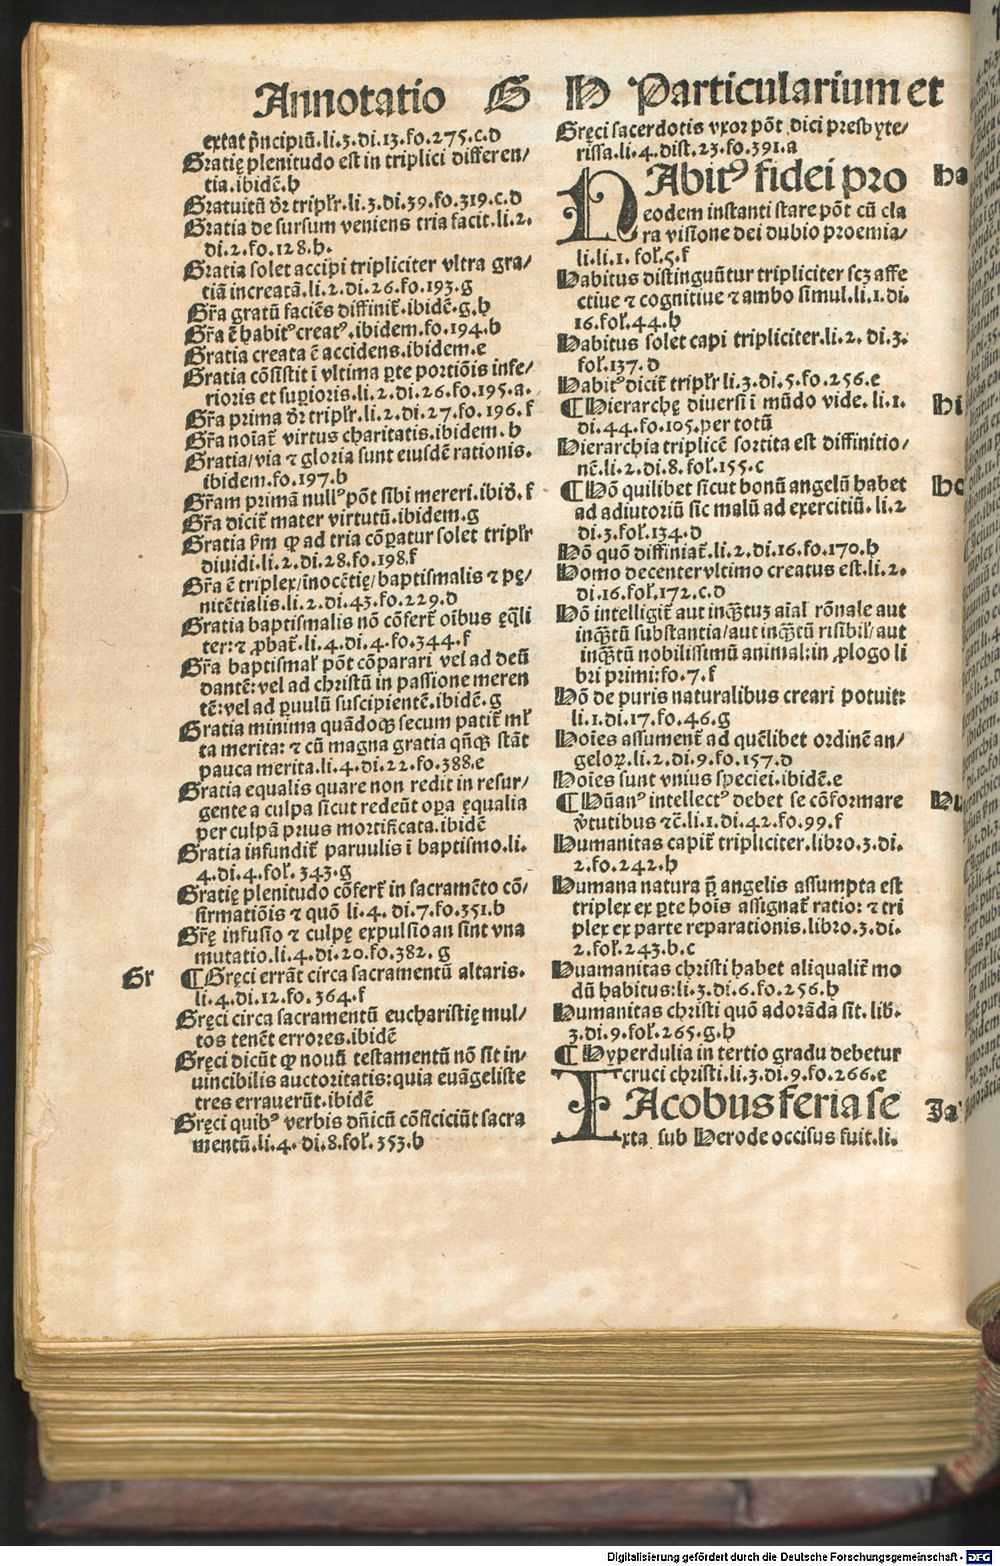 Annotatio G H Particularium et
extat p̃ncipiũ.li.3.di.13.fo.275.c.d
Gratię plenitudo est in triplici differen/
tia.ibidẽ.h
Gratuitũ dr̃ tripl'r.li.3.di.39.fo.319.c.d
Gratia de sursum veniens tria facit.li.2.
di.2.fo.128.h.
Gratia solet accipi tripliciter vltra gra/
tiã increatã.li.2.di.26.fo.193.g
Gr̃a gratũ faciẽs diffinit̃.ibidẽ.g.h
Gr̃a ẽ habitꝰ creatꝰ.ibidem.fo.194.b
Gratia creata ẽ accidens.ibidem.e
Gratia cõsistit ĩ vltima ꝑte portiõis infe/
rioris et suꝑioris.li.2.di.26.fo.195.a.
Gr̃a prima dr̃ tripl'r.li.2.di.27.fo.196.f
Gr̃a noĩat̃ virtus charitatis.ibidem.h
Gratia/via ⁊ gloria sunt eiusdẽ rationis.
ibidem.fo.197.b
Gr̃am primã nullꝰ põt sibi mereri.ibid̃.f
Gr̃a dicit̃ mater virtutũ.ibidem.g
Gratia ẜm ꝙ ad tria cõꝑatur solet tripl'r
diuidi.li.2.di.28.fo.198.f
Gr̃a ẽ triplex/ĩnocẽtię/baptismalis ⁊ pę/
nitẽtialis.li.2.di.43.fo.229.d
Gratia baptismalis nõ cõfert̃ oĩbus ęq̃li
ter:⁊ ꝓbat̃.li.4.di.4.fo.344.f
Gr̃a baptismal' põt cõparari vel ad deũ
dantẽ:vel ad christũ in passione meren
tẽ:vel ad ꝑuulũ suscipientẽ.ibidẽ.g
Gratia minima quãdoqꝫ secum patit̃ ml'
ta merita: ⁊ cũ magna gratia qñqꝫ stãt
pauca merita.li.4.di.22.fo.388.e
Gratia equalis quare non redit in resur-
gente a culpa sicut redeũt oꝑa ęqualia
per culpã prius mortificata.ibidẽ
Gratia infundit̃ paruulis ĩ baptismo.li.
4.di.4.fol'.343.g
Gratię plenitudo cõfert̃ in sacramẽto cõ/
firmatiõis ⁊ quõ li.4. di.7.fo.351.b
Gr̃ę infusio ⁊ culpę expulsio an sint vna
mutatio.li.4.di.20.fo.382. g
Gr ¶Gręci errãt circa sacramentũ altaris.
li.4.di.12.fo.364.f
Gręci circa sacramentũ eucharistię mul/
tos tenẽt errores.ibidẽ
Gręci dicũt ꝙ nouũ testamentũ nõ sit in/
uincibilis auctoritatis:quia euãgeliste
tres errauerũt.ibidẽ
Gręci quibꝰ verbis dñicũ cõficiciũt sacra
mentũ.li.4. di.8.fol'.353.b
Gręci sacerdotis vxor põt dici presbyte/
rissa.li.4.dist.23.fo.391.a
HAbitꝰ fidei pro ha
eodem instanti stare põt cũ cla
ra visione dei dubio proemia/
li.li.1. fol'.5.f
Habitus distinguũtur tripliciter scꝫ affe
ctiue ⁊ cognitiue ⁊ ambo simul.li.1.di.
16.fol'.44.h
Habitus solet capi tripliciter.li.2. di.3.
fol'.137.d
Habitꝰ dicit̃ tripl'r li.3.di.5.fo.256.e
¶Hierarchę diuersi ĩ mũdo vide. li.1. hi
di.44.fo.105.per totũ
Hierarchia triplicẽ sortita est diffinitio/
nẽ.li.2.di.8. fol'.155.c
¶Hõ quilibet sicut bonũ angelũ habet ho
ad adiutoriũ sic malũ ad exercitiũ. li.2
di.3.fol'.134.d
Hõ quõ diffiniat̃.li.2.di.16.fo.170.h
Homo decenter vltimo creatus est.li.2.
di.16.fol'.172.c.d
Hõ intelligit̃ aut inqꝫtuꝫ aĩal rõnale aut
inqꝫtũ substantia/aut inqꝫtũ risibil'/aut
inqꝫtũ nobilissimũ animal:in ꝓlogo li
bri primi:fo.7.f
Hõ de puris naturalibus creari potuit:
li.1.di.17.fo.46.g
Hoĩes assument̃ ad quẽlibet ordinẽ an/
geloꝝ.li.2.di.9.fo.157.d
Hoĩes sunt vnius speciei.ibidẽ.e
¶Hũanꝰ intellectꝰ debet se cõformare Hu
v̾tutibus ⁊c̃.li.1.di.42.fo.99.f
Humanitas capit̃ tripliciter.libro.3.di.
2.fo.242.h
Humana natura p̃ angelis assumpta est
triplex ex ꝑte hoĩs assignat̃ ratio: ⁊ tri
plex ex parte reparationis.libro.3.di.
2.fol'.243.b.c
Huamanitas christi habet aliqualit̃ mo
dũ habitus:li.3.di.6.fo.256.h
Humanitas christi quõ adorãda sit. lib'.
3.di.9.fol'.265.g.h
¶Hyperdulia in tertio gradu debetur
cruci christi.li.3.di.9.fo.266.e
IAcobus feria se Ja
xta sub Herode occisus fuit.li.
Digitalisierung gefördert durch die Deutsche Forschungsgemeinschaft - DFG